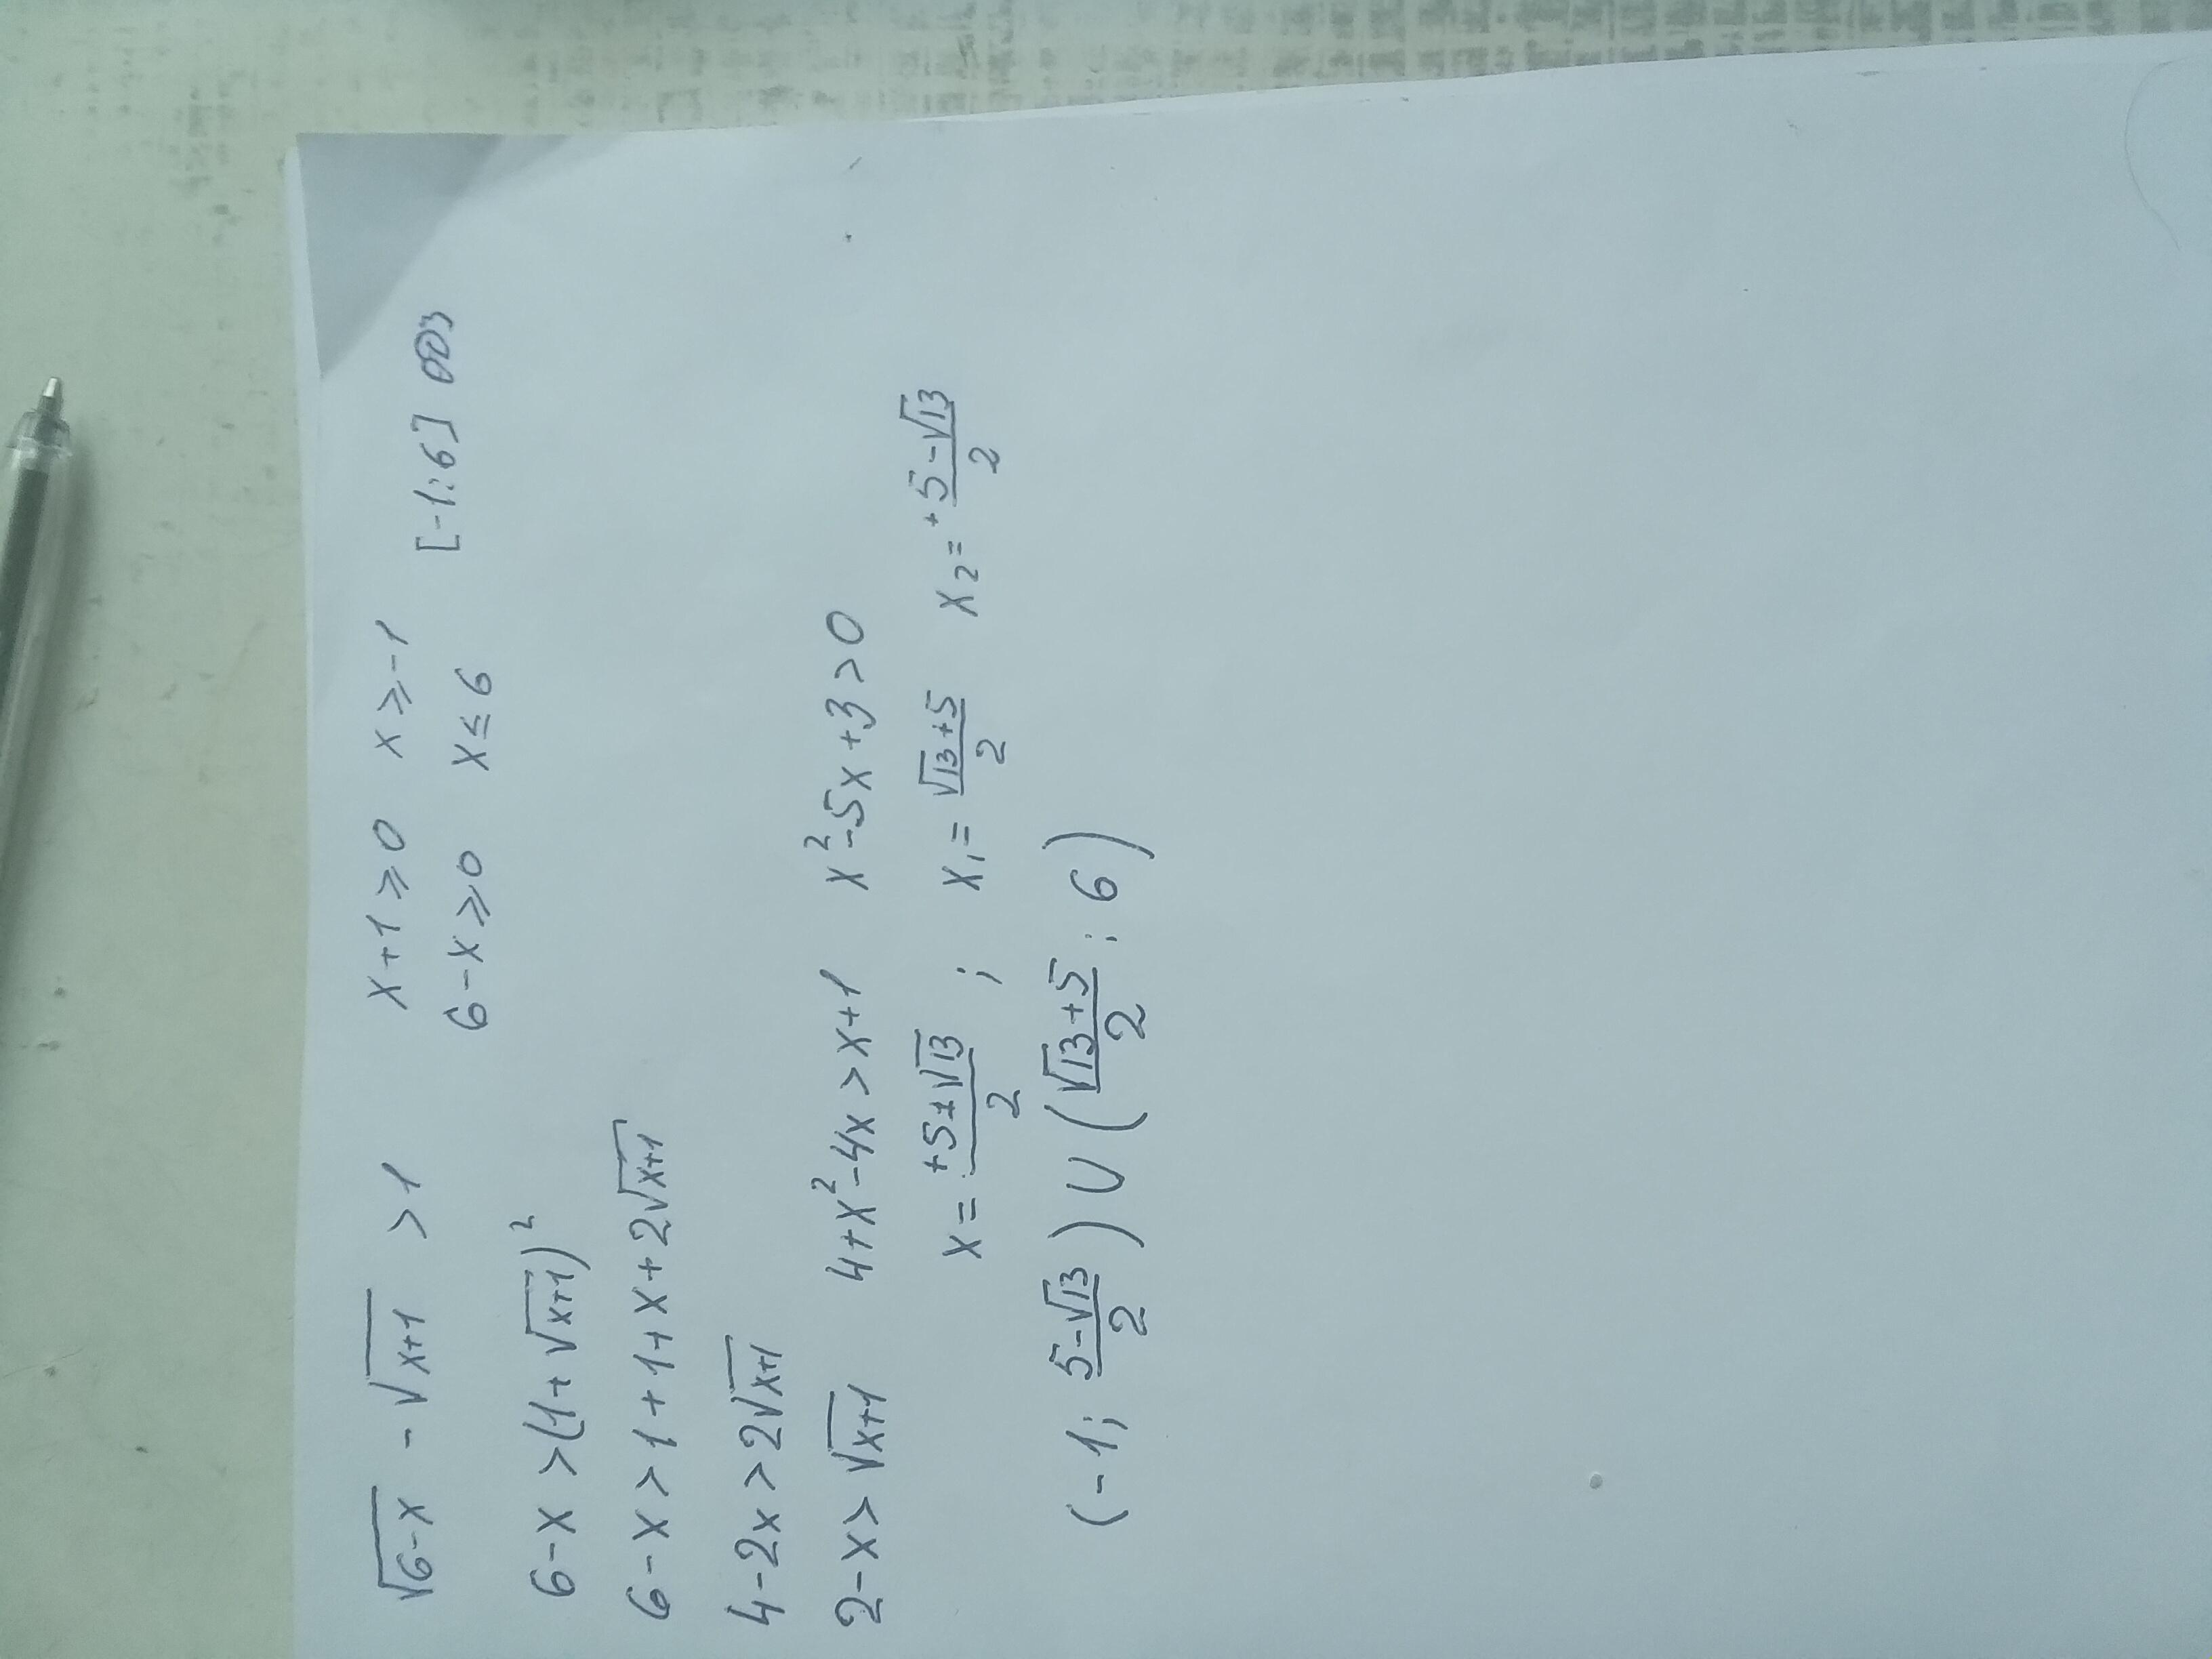 √(6-x) - √(x+1) > 1 x+1⩾0 x⩾-1
6-x⩾0 x≤6 [-1:6] ОДЗ
6-x>(1+√(x+1))²
6-x>1+1+x+2√(x+1)
4-2x>2√(x+1)
2-x>√(x+1) 4+x²-4x>x+1 x²-5x+3>0
x = (+5±√13)/2 ; x₁ = (√13+5)/2 x₂ = +(5-√13)/2
(-1; (5-√13)/2) ∪ ((√13+5)/2 : 6)